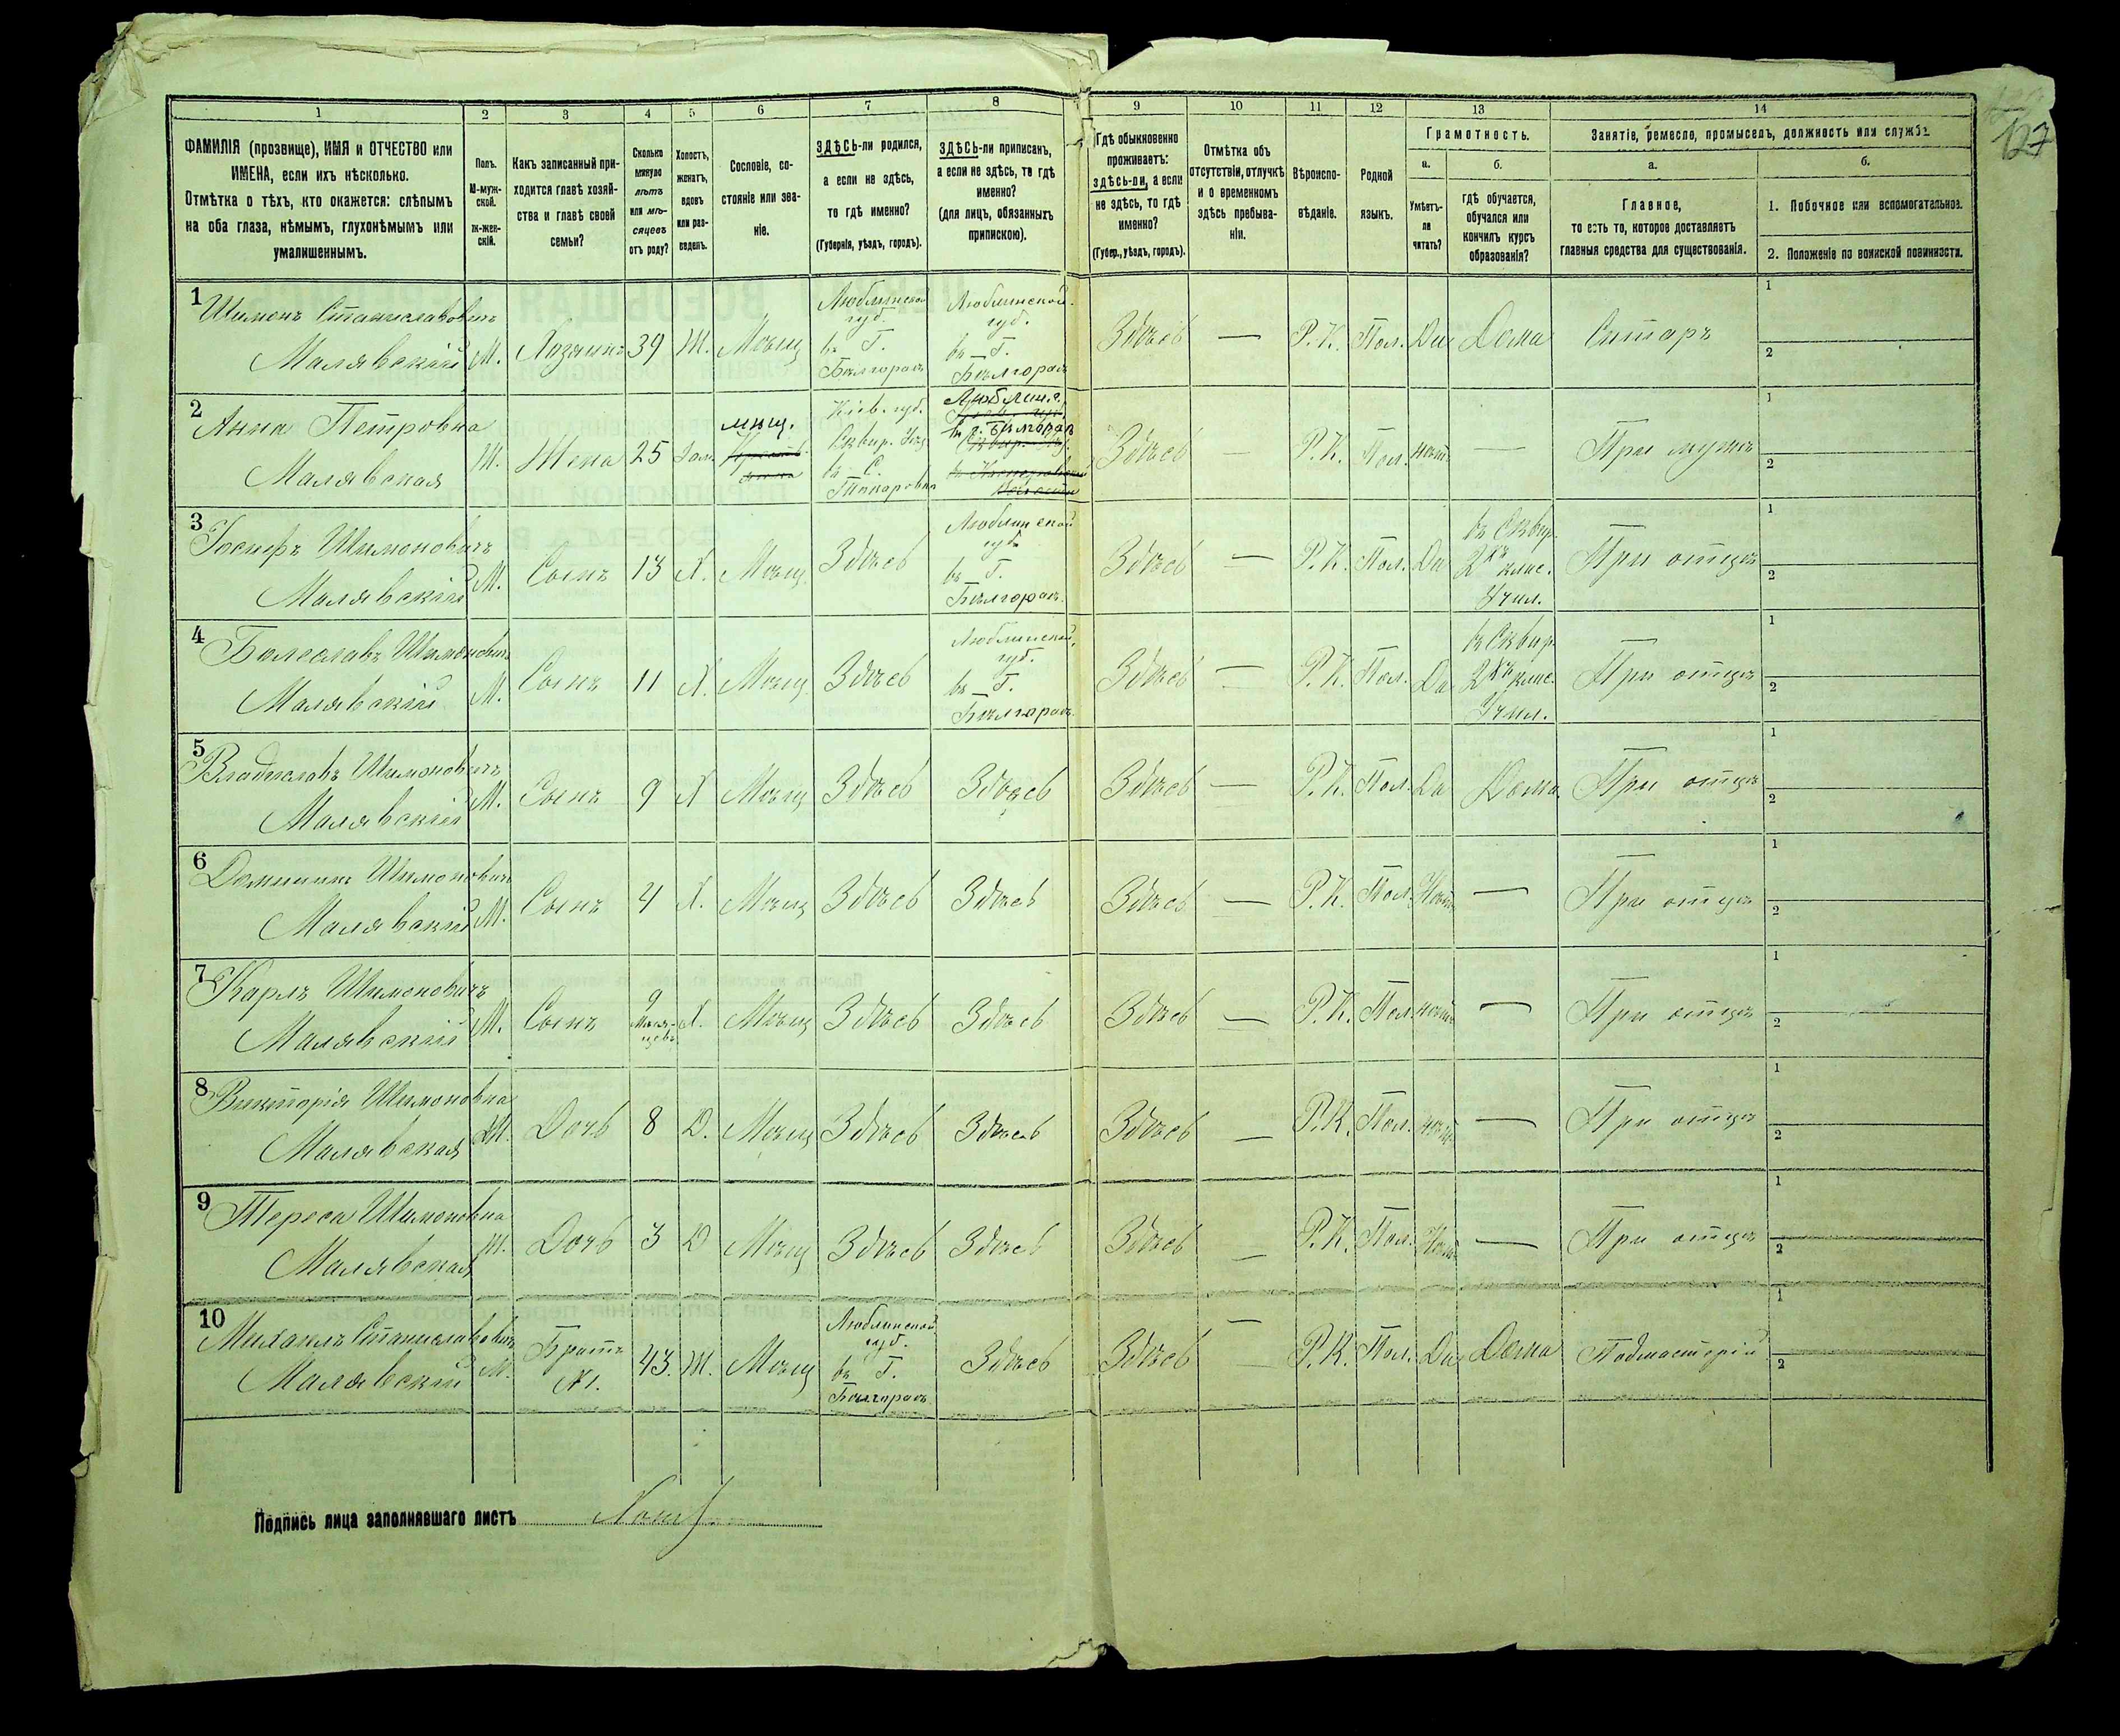 127
1 2 3 4 5 6 7 8 9 10 11 12 13 14
ФАМИЛІЯ (прозвище), ИМЯ и ОТЧЕСТВО или
ИМЕНА, если ихъ нѣсколько.
Отмѣтка о тѣхъ, кто окажется: слѣпымъ
на оба глаза, нѣмымъ, глухонѣмымъ или
умалишеннымъ.
Полъ.
М-муж-
ской.
Ж-жен-
скій.
Какъ записанный при-
ходится главѣ хозяй-
ства и главѣ своей
семьи?
Сколько
минуло
лѣтъ
или мѣ-
сяцевъ
отъ роду?
Холостъ,
женатъ,
вдовъ
или раз-
веденъ.
Сословіе, со-
стояніе или зва-
ніе.
ЗДѢСЬ-ли родился,
а если не здѣсь,
то гдѣ именно?
(Губернія, уѣздъ, городъ).
ЗДѢСЬ-ли приписанъ,
а если не здѣсь, то гдѣ
именно?
(для лицъ, обязанныхъ
припискою).
Гдѣ обыкновенно
проживаетъ:
здѣсь-ли, а если
не здѣсь, то гдѣ
именно?
(Губер., уѣздъ, городъ).
Отмѣтка объ
отсутствіи, отлучкѣ
и о временномъ
здѣсь пребыва-
ніи.
Вѣроиспо-
вѣданіе.
Родной
языкъ.
Грамотность.
а.
Умѣетъ-
ли
читать?
б.
гдѣ обучается,
обучался или
кончилъ курсъ
образованія?
Занятіе, ремесло, промыселъ, должность или служба.
а.
Главное,
то есть то, которое доставляетъ
главныя средства для существованія.
б.
1. Побочное или вспомогательное.
2. Положеніе по воинской повинности.
1
Шимонъ Станиславовичъ
Малявскій
М.
Хозяинъ
39
Ж.
Мѣщ
Люблинской
губ.
въ Г.
Бѣлгораѣ
Люблинской
губ.
въ Г.
Бѣлгораѣ
Здѣсь
—
Р. К.
Пол.
Да
Дома
Столяръ
1
2
2
Анна Петровна
Малявская
Ж.
Жена
25
Зам.
мѣщ.
Кіев. губ.
Сквир. Уѣз
въ С.
Токаровка
Люблин. г.
въ г. Бѣлгораѣ
Здѣсь
—
Р. К.
Пол.
нѣтъ
—
При мужѣ
1
2
3
Іосифъ Шимоновичъ
Малявскій
М.
Сынъ
13
Х.
Мѣщ.
Здѣсь
Люблинской
губ.
въ Г.
Бѣлгораѣ.
Здѣсь
—
Р. К.
Пол.
Да
въ Сквир.
2хъ клас.
Учил.
При отцѣ
1
2
4
Болеславъ Шимоновичъ
Малявскій
М.
Сынъ
11
Х.
Мѣщ.
Здѣсь
Люблинской
губ.
въ Г.
Бѣлгораѣ.
Здѣсь
—
Р. К.
Пол.
Да
въ Сквир.
2хъ клас.
Учил.
При отцѣ
1
2
5
Владиславъ Шимоновичъ
Малявскій
М.
Сынъ
9
Х
Мѣщ
Здѣсь
Здѣсь
Здѣсь
—
Р. К.
Пол.
Да
Дома.
При отцѣ
1
2
6
Доминикъ Шимоновичъ
Малявскій
М.
Сынъ
4
Х.
Мѣщ
Здѣсь
Здѣсь
Здѣсь
—
Р. К.
Пол.
Нѣтъ
—
При отцѣ
1
2
7
Карлъ Шимоновичъ
Малявскій
М.
Сынъ
9
Меся-
цевъ
Х.
Мѣщ
Здѣсь
Здѣсь
Здѣсь
—
Р. К.
Пол.
нѣтъ
—
При отцѣ
1
2
8
Викторія Шимоновна
Малявская
Ж.
Дочь
8
Д.
Мѣщ
Здѣсь
Здѣсь
Здѣсь
—
Р. К.
Пол.
нѣтъ
—
При отцѣ
1
2
9
Тереса Шимоновна
Малявская
Ж.
Дочь
3
Д
Мѣщ
Здѣсь
Здѣсь
Здѣсь
—
Р. К.
Пол.
Нѣтъ
—
При отцѣ
1
2
10
Михаилъ Станиславовичъ
Малявскій
М.
Братъ
№ 1.
43.
Ж.
Мѣщ
Люблинской
губ.
въ Г.
Бѣлгораѣ
Здѣсь
Здѣсь
—
Р. К.
Пол.
Да
Дома
Подмастерій
1
2
Подпись лица заполнявшаго листъ